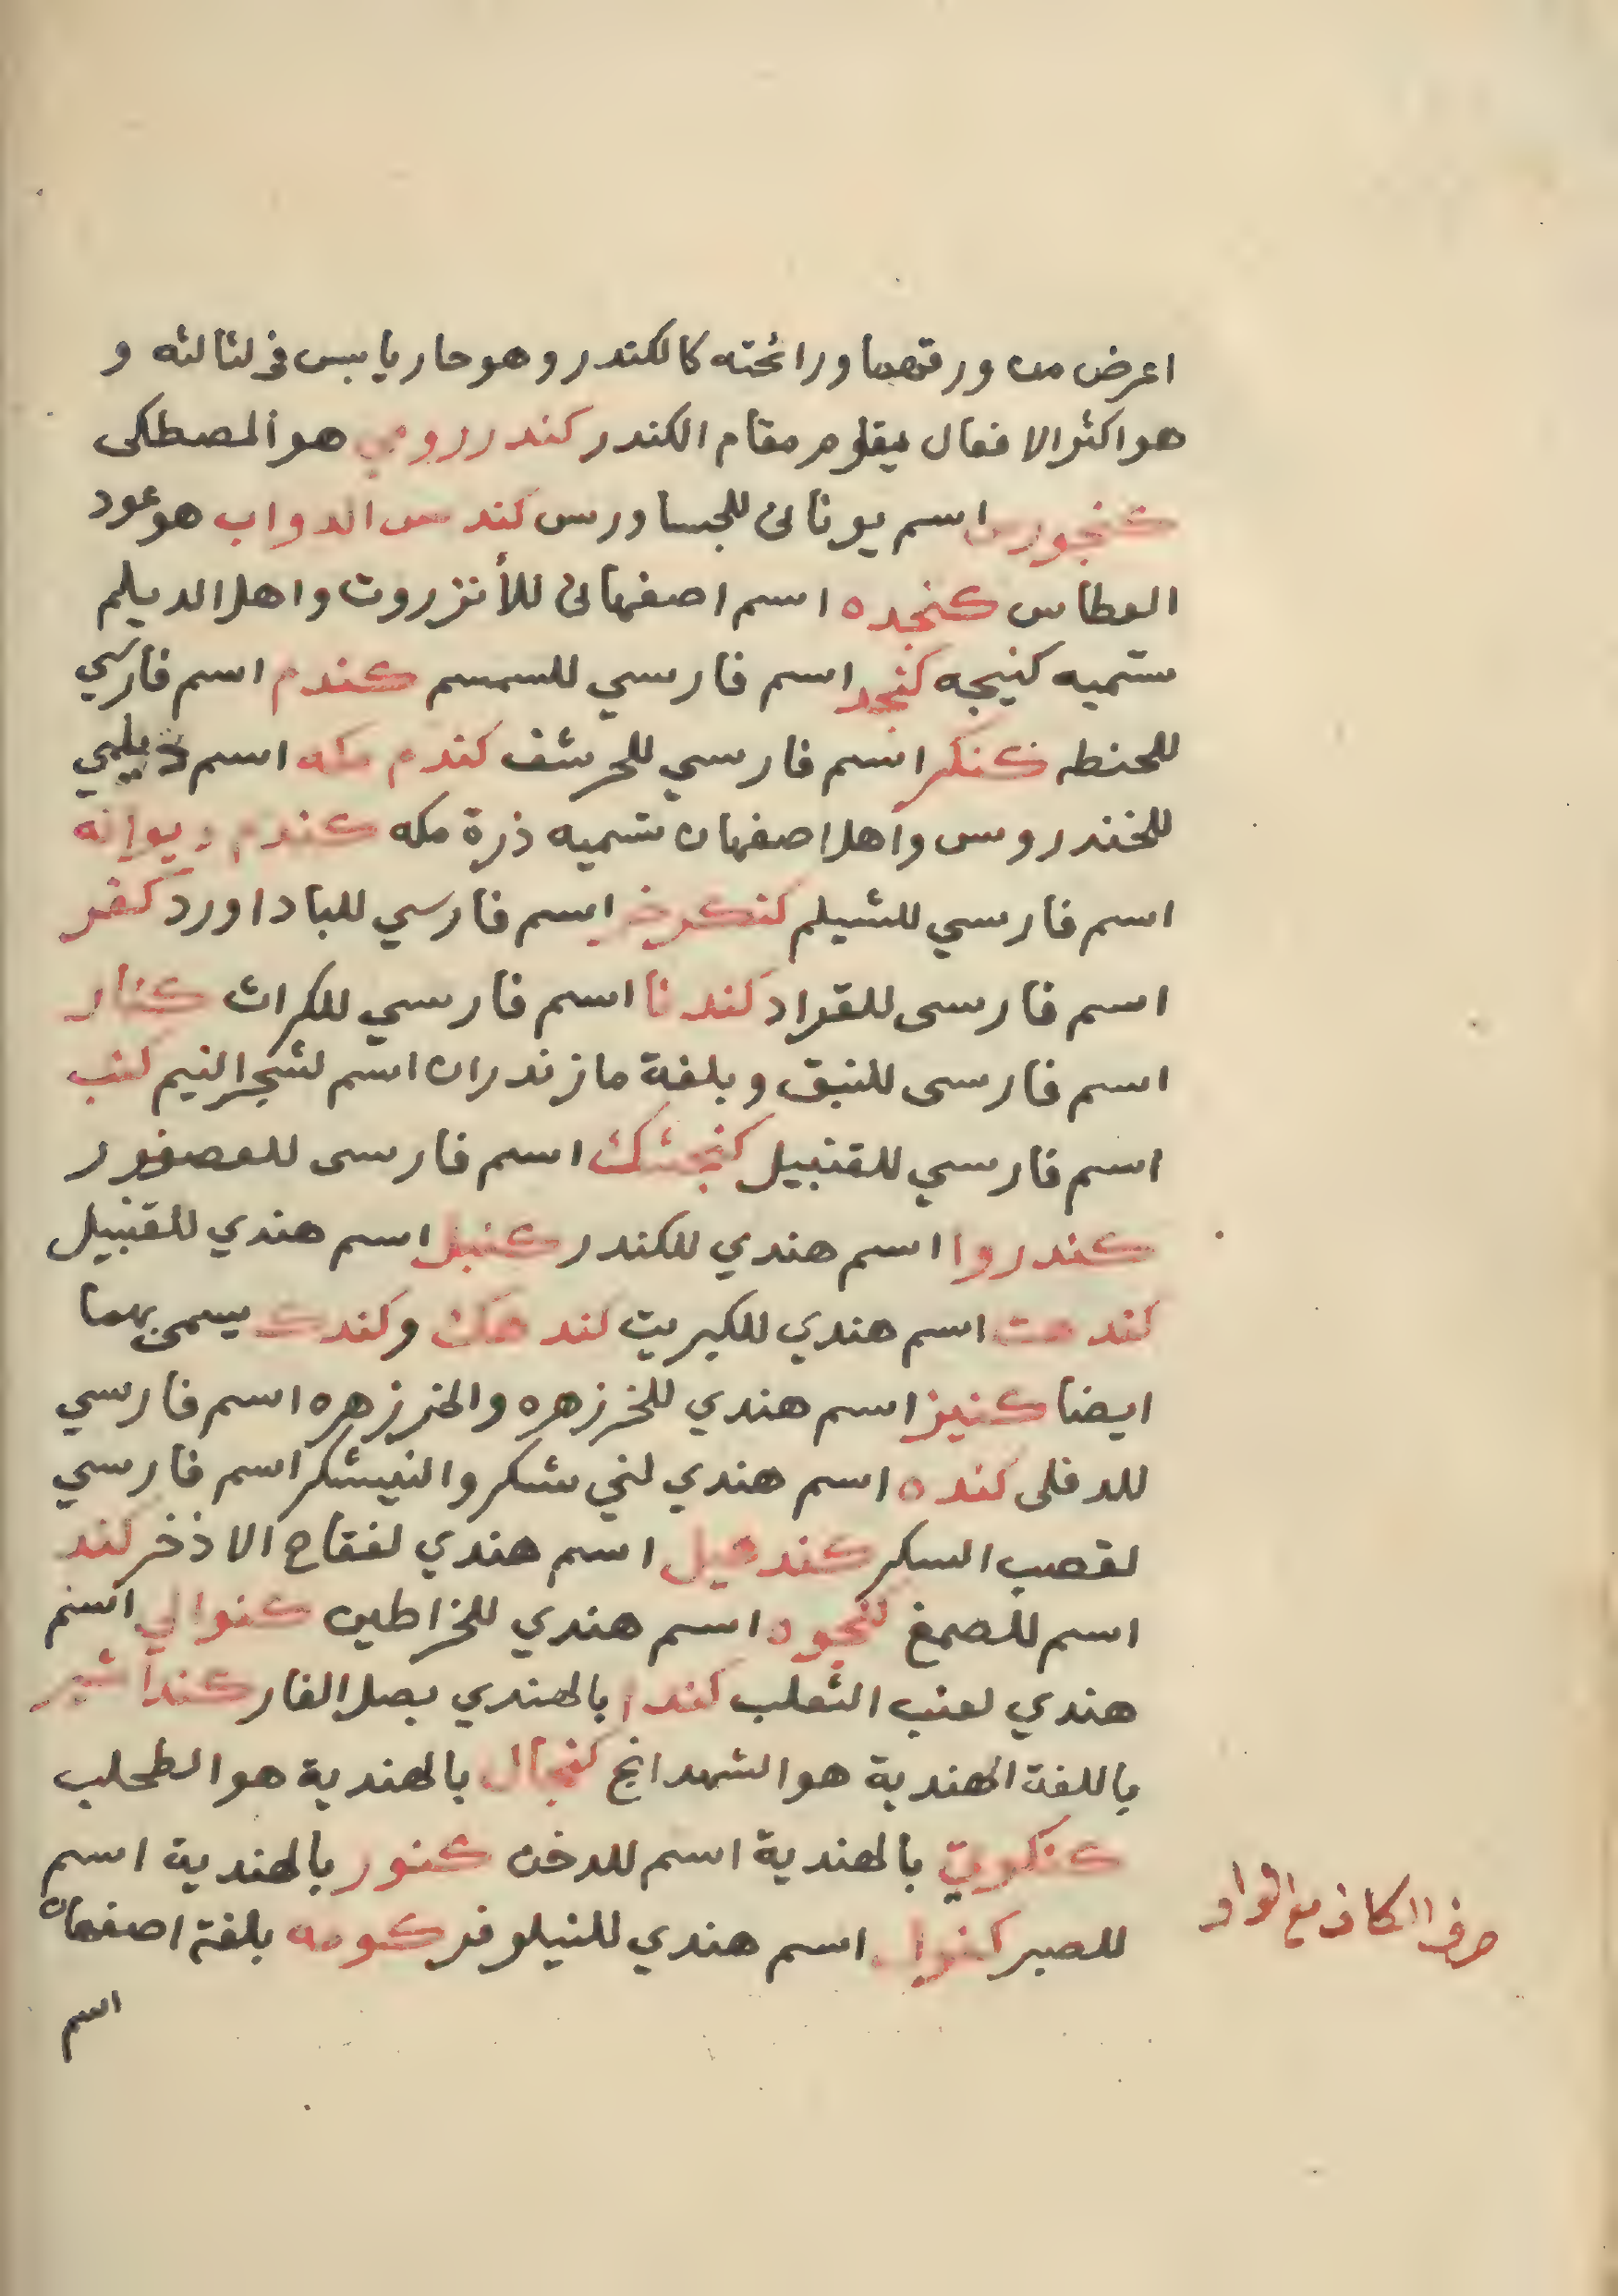 اعرض من ورقتهما ورائحته كالكندر وهو حار يابس فى لثالثه و
هو اكثر الافعال يقلوم مقام الكندر كندر رومي هو المصطكى
كنجورس اسم يونانى للجساورس كندس الدواب هو عود
العطاس كنجده اسم اصفهانى للأنزروت واهل الديلم
ستميه كنيجه كنجد اسم فارسي للسمسم كندم اسم فارسي
للحنطه كنكر اسم فارسي للحرشف كندم مكه اسم ديلمي
للخندروس واهل اصفهان تسميه ذرة مكه كندم ديوانه
اسم فارسي للشيلم كنكر خر اسم فارسي للباداورد كفر
اسم فارسى للقراد كندنا اسم فارسي للكراث كنار
اسم فارسى للنبق وبلغة مازندران اسم لشجر النيم كنب
اسم فارسي للقنبيل كنجشك اسم فارسى للعصفور
كندروا اسم هندي للكندر كنبل اسم هندي للقنبيل
كندهت اسم هندي للكبريت كندهك وكندك يسمى بهما
ايضا كنيز اسم هندي للخرزهره والخرزهره اسم فارسي
للدفلى كنده اسم هندي لني شكر والنيشكر اسم فارسي
لقصب السكر كندهيل اسم هندي لفقاح الاذخر كند
اسم للصمغ كنجود اسم هندي للخراطين كنوالي اسم
هندي لعنب الثعلب كندا بالهندي بصل الفار كندا شير
باللغة الهندية هو الشهدانج كنجال بالهندية هو الطحلب
كنكريت بالهندية اسم للدخن كنور بالهندية اسم
للصبر كنوال اسم هندي للنيلوفر كومه بلغة اصفهان
اسم
حرف الكاف مع الواو